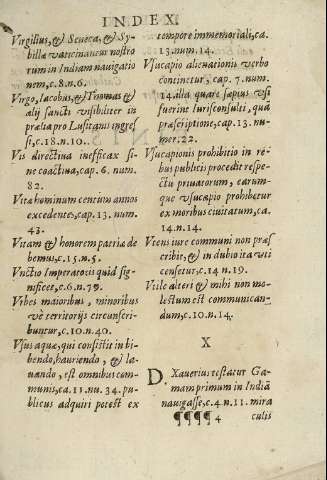 INDEX.
Virgilius, & Seneca, & Sy-
billæ vaticinantur nostro
rum in Indiam nauigatio
nem, c.8.n.6.
Virgo, Iacobus, & Thomas &
alij sancti visibiliter in
prælia pro Lusitanis ingres
si, c.18.n.10.
Vis directiua inefficax si-
ne coactiua, cap. 6. num.
82.
Vita hominum centum annos
excedentes, cap. 13. num.
43.
Vitam & honorem patriæ de
bemus, c.15.n.5.
Vnctio Imperatoris quid sig-
nificet, c.6.n.79.
Vrbes maioribus, minoribus
vè territorijs circunscri-
buntur, c.10.n.40.
Vsus aquæ, qui consistit in bi-
bendo, hauriendo, & la-
uando, est omnibus com-
munis, ca.11.nu.34. pu-
blicus adquiri potest ex
tempore immemoriali, ca.
13.num.14.
Vsucapio alienationis verbo
continetur, cap. 7. num.
14. alia quare sæpius vsi
fuerint Iurisconsulti, quã
præscriptione, cap. 13. nu-
mer. 22.
Vsucapionis prohibitio in re-
bus publicis procedit respe-
ctu priuatorum, earum-
que vsucapio prohibetur
ex moribus ciuitatum, ca.
14.n.14.
Vtens iure communi non præs
cribit, & in dubio ita vti
censetur, c.14 n.19.
Vtile alteri & mihi non mo-
lestum est communican-
dum, c.10.n.14.
X
D. Xauerius testatur Ga-
mam primum in Indiã
nauigasse, c.4 n.11. mira
¶¶¶¶ 4 culis